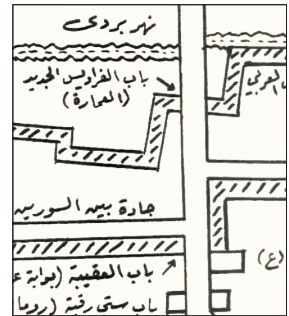 نهر بردى
باب الفراديس الجديد
(العمارة)
جادة بين السورين
باب العقيبة (بوابة
باب ستي رقية (روما
(ع)